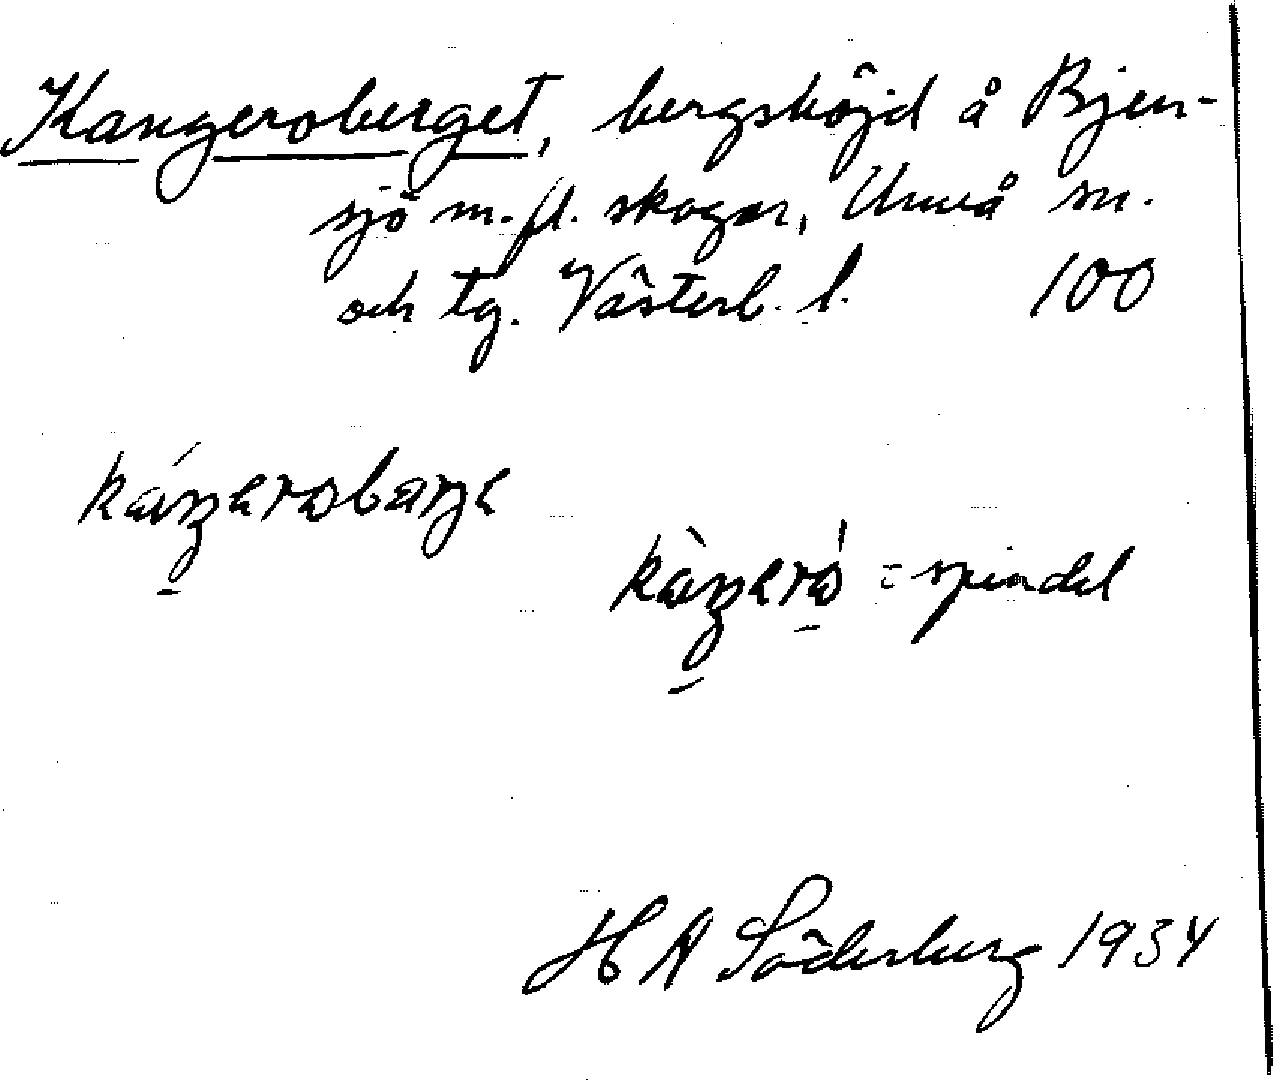 Kangeroberget, bergshöjd å Bjen-
sjö m. fl. skogar, Umeå sn.
och tg. Västerb. l. 100
káŋərωbarγə
kàŋərώ = spindel
H A Söderberg 1934